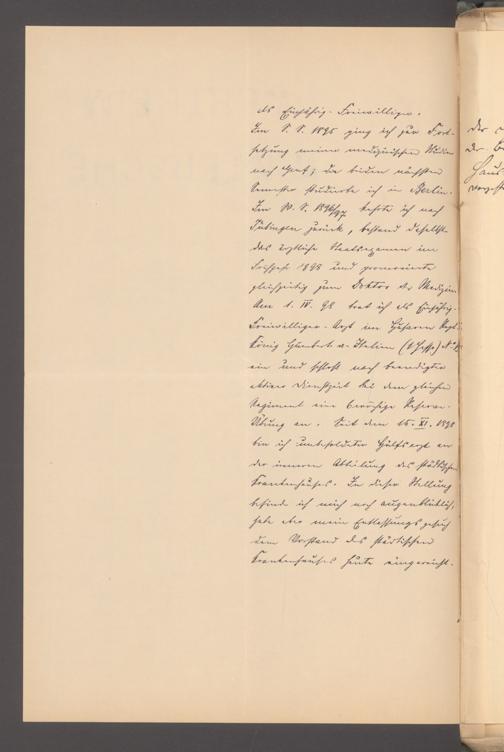 als Einjährig-Freiwilliger.
Im S. S. 1895 ging ich zur Fort-
setzung meiner medizinischen Studien
nach Genf; die beiden nächsten
Semester studierte ich in Berlin.
Im W. S. 1896/97 kehrte ich nach
Tübingen zurück, bestand daselbst
das ärztliche Staatsexamen im
Frühjahr 1898 und promovierte
gleichzeitig zum Doktor der Medizin.
Am 1. IV. 98 trat ich als Einjährig-
Freiwilliger-Arzt im Husaren Regt.
König Humbert v. Italien
ein und schloß nach beendigter
aktiver Dienstzeit bei dem gleichen
Regiment eine 6wöchige Reserve-
Übung an. Seit dem 15. XI. 1898
bin ich unbesoldeter Hülfsarzt an
der inneren Abteilung des städtischen
Krankenhauses. In dieser Stellung
befinde ich mich noch augenblicklich,
habe aber mein Entlassungsgesuch
dem Vorstand des städtischen
Krankenhauses heute eingereicht.
der
der